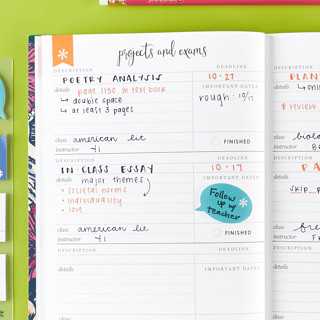 projects and exams
DESCRIPTION DEADLINE DESCRIPTION
POETRY ANALYSIS 10-27 PLAN
details page 1150 in text book IMPORTANT DATES details
↳ double space rough: 10/17
↳ at least 3 pages review
class american lit class
instructor FINISHED instructor
DESCRIPTION DEADLINE DESCRIPTION
IN CLASS ESSAY 10-17
details major themes IMPORTANT DATES details
• societal norms
• individuality
• love
Follow
up w/
teacher
class american lit class
instructor FINISHED instructor
DESCRIPTION DEADLINE DESCRIPTION
details IMPORTANT DATES details